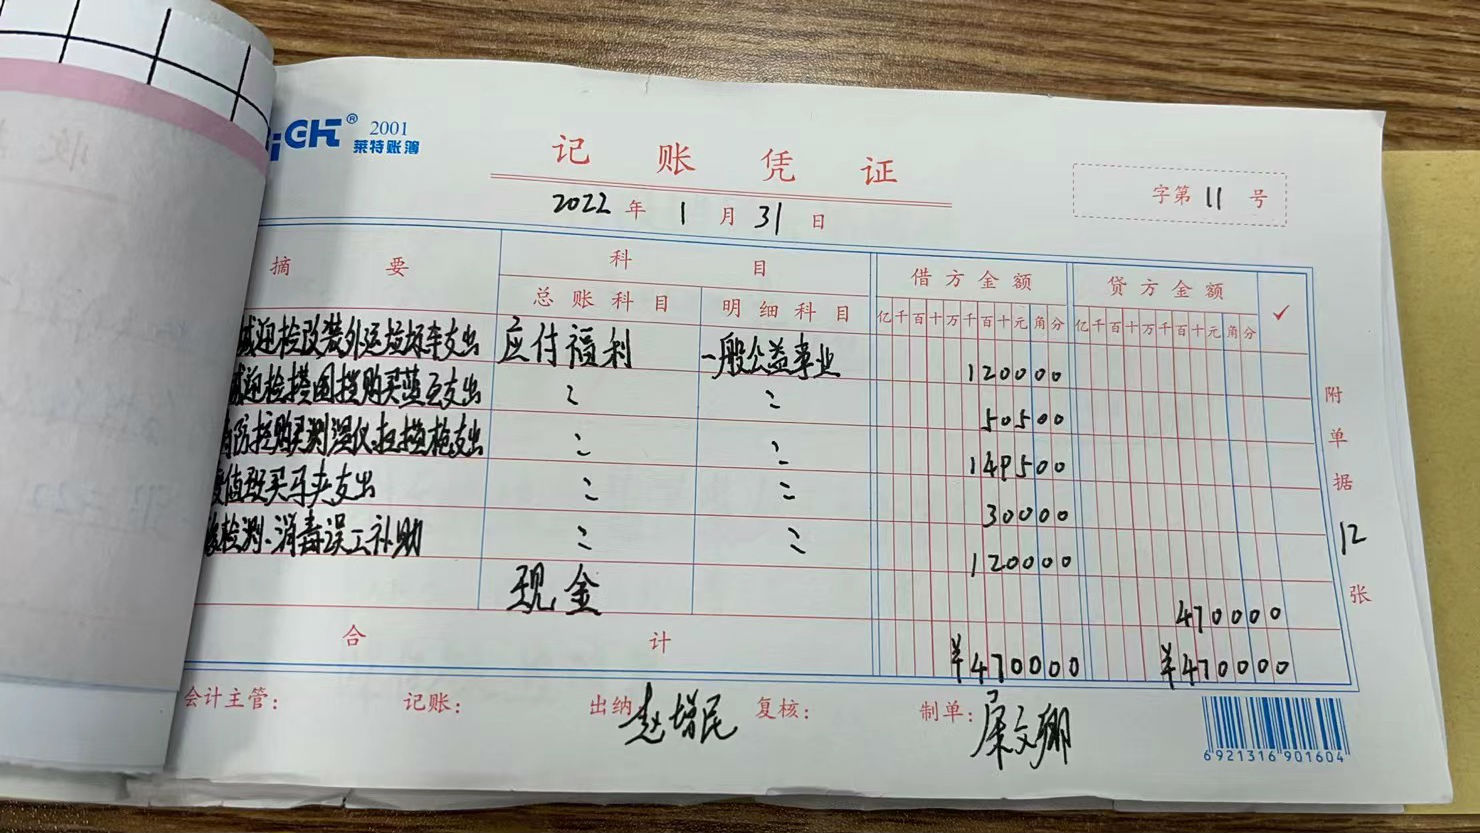 2001
莱特账簿
记账凭证
2022年1月31日
字第11号
摘要 科目 借方金额 贷方金额 ✓
总账科目 明细科目 亿千百十万千百十元角分 亿千百十万千百十元角分
迎检改装外运垃圾车支出 应付福利 一般公益事业 120000
迎检搭围挡购买蓝瓦支出 〃 〃 50500
防控购买测温仪、扫描枪支出 〃 〃 149500
值班买马夹支出 〃 〃 30000
检测、消毒误工补助 〃 〃 120000
现金 470000
合计 ¥470000 ¥470000
附单据12张
会计主管: 记账: 出纳 赵增民 复核: 制单:
6921316901604